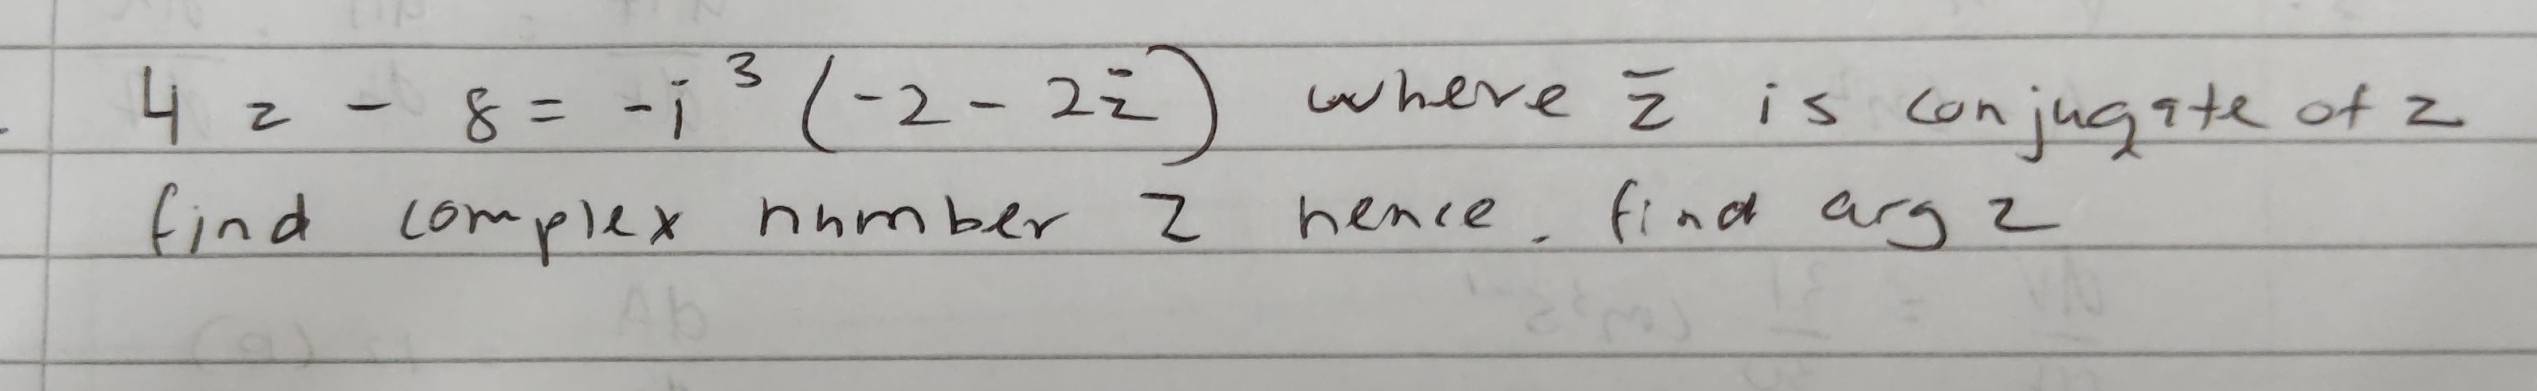 4z - 8 = -i³ (-2 - 2z̄) where z̄ is conjugate of z
find complex number z hence. find arg z